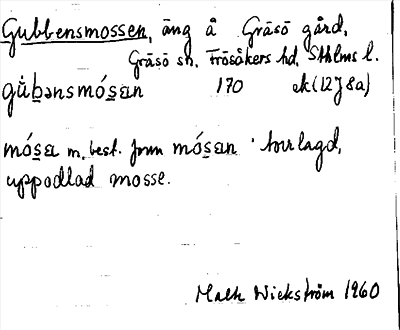 Gubbensmossen, äng å Gräsö gård,
Gräsö sn, Frösåkers hd, Sthlms l.
gǘb̲ənsmós̲ɛn 170 ek (12J8a)
mós̲ɛ m, best. form mós̲ɛn 'torrlagd,
uppodlad mosse.
Wickström 1960